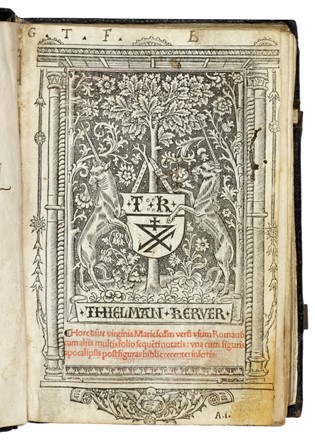 G. T. F. B
T R
THIELMAN KERVER
Hore diue virginis Marie scdm verū vsum Romanū
cum aliis multis folio sequēti notatis: vna cum figuris
apocalipsis post figuras biblie recenter insertis.
A.i.